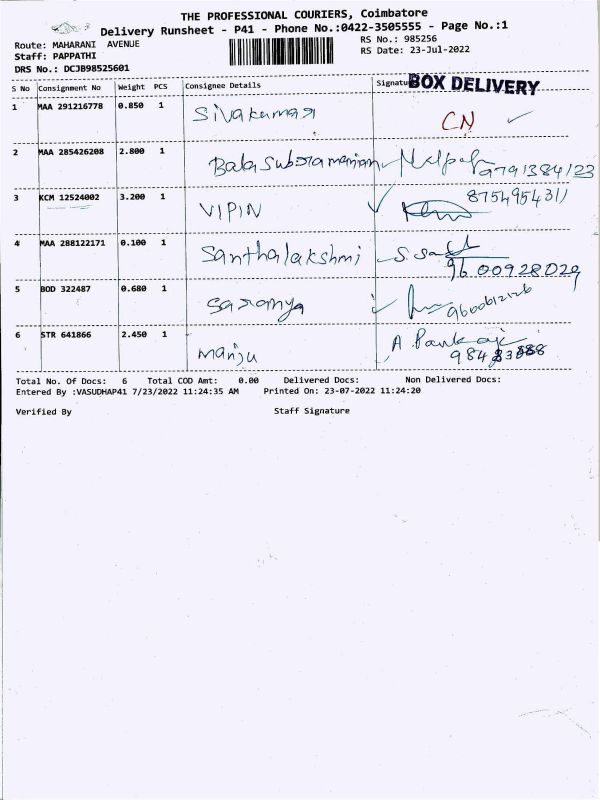 THE PROFESSIONAL COURIERS, Coimbatore
Delivery Runsheet - P41 - Phone No.:0422-3505555 - Page No.:1
Route: MAHARANI AVENUE RS No.: 985256
Staff: PAPPATHI RS Date: 23-Jul-2022
DRS No.: DCJB98525601
S No Consignment No Weight PCS Consignee Details Signature BOX DELIVERY
1 MAA 291216778 0.850 1 Sivakumar CN
2 MAA 285426208 2.800 1 Balasubramaniam 9791384123
3 KCM 12524002 3.200 1 VIPIN 8754954311
4 MAA 288122171 0.100 1 Santhalakshmi 9600928029
5 BOD 322487 0.680 1 Saranya
6 STR 641866 2.450 1 Manju A Pankaj
Total No. Of Docs: 6 Total COD Amt: 0.00 Delivered Docs: Non Delivered Docs:
Entered By :VASUDHAP41 7/23/2022 11:24:35 AM Printed On: 23-07-2022 11:24:20
Verified By Staff Signature